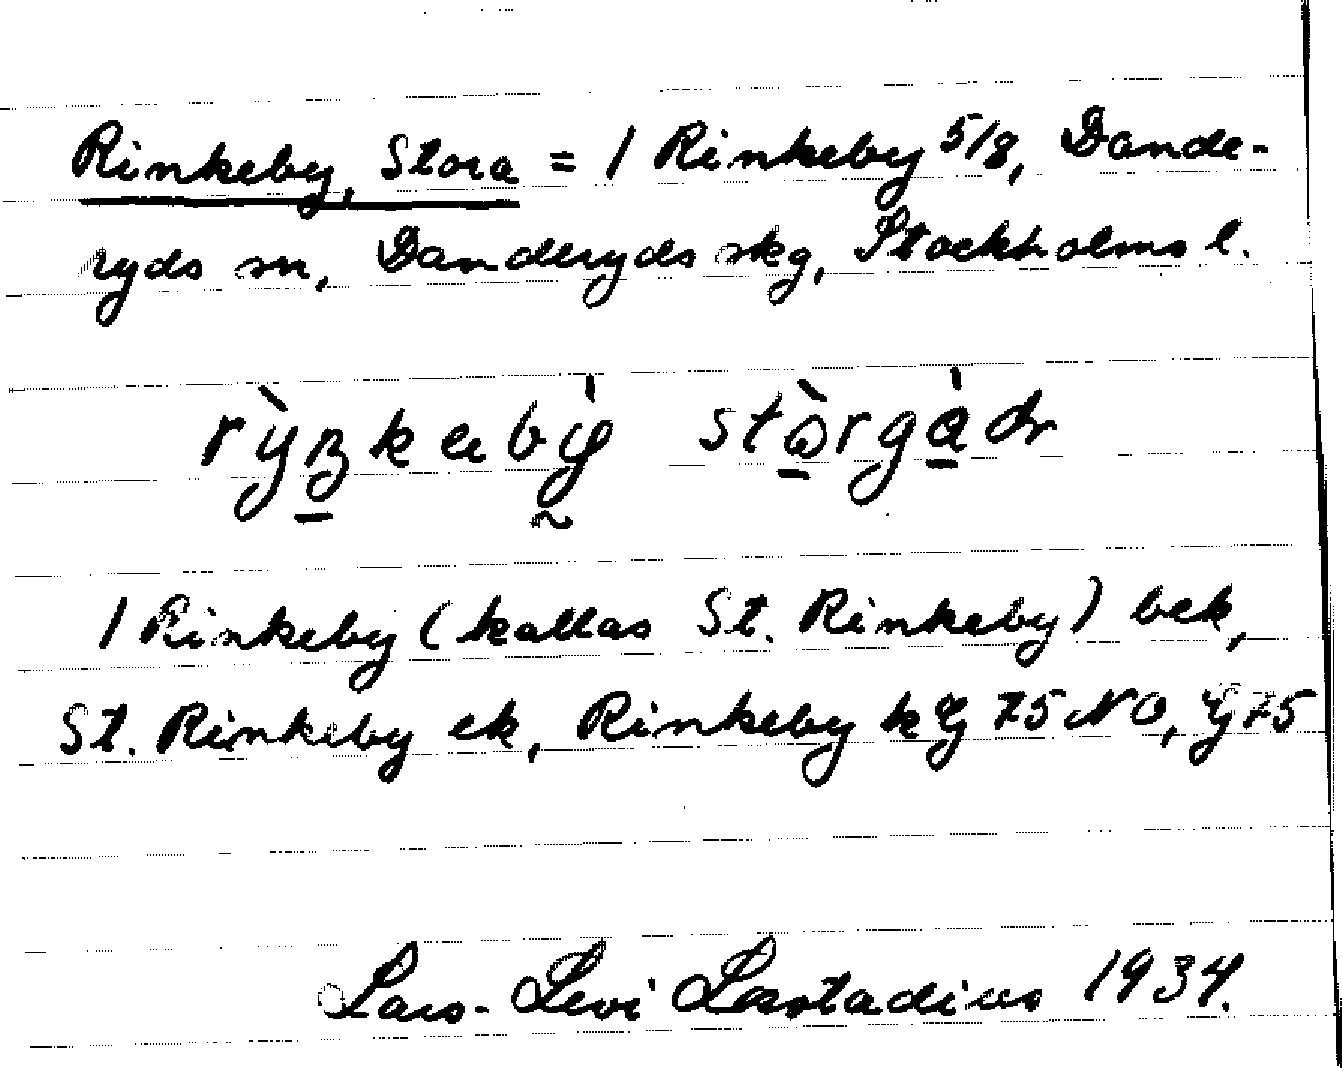 Rinkeby, Stora = 1 Rinkeby 5/8, Dande-
ryds sn, Danderyds skg, Stockholms l.
1 Rinkeby (kallas St. Rinkeby) bek,
St. Rinkeby ek, Rinkeby k Y 75 NO, Y 75
Lars-Levi Læstadius 1934.